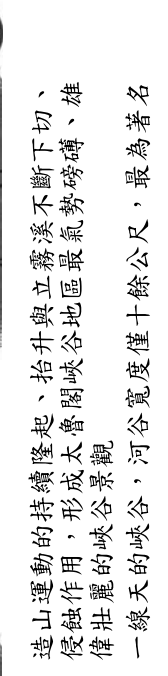 造山運動的持續隆起、抬升與立霧溪不斷下切、
侵蝕作用，形成太魯閣峽谷地區最氣勢磅礡、雄
偉壯麗的峽谷景觀
一線天的峽谷，河谷寬度僅十餘公尺，最為著名